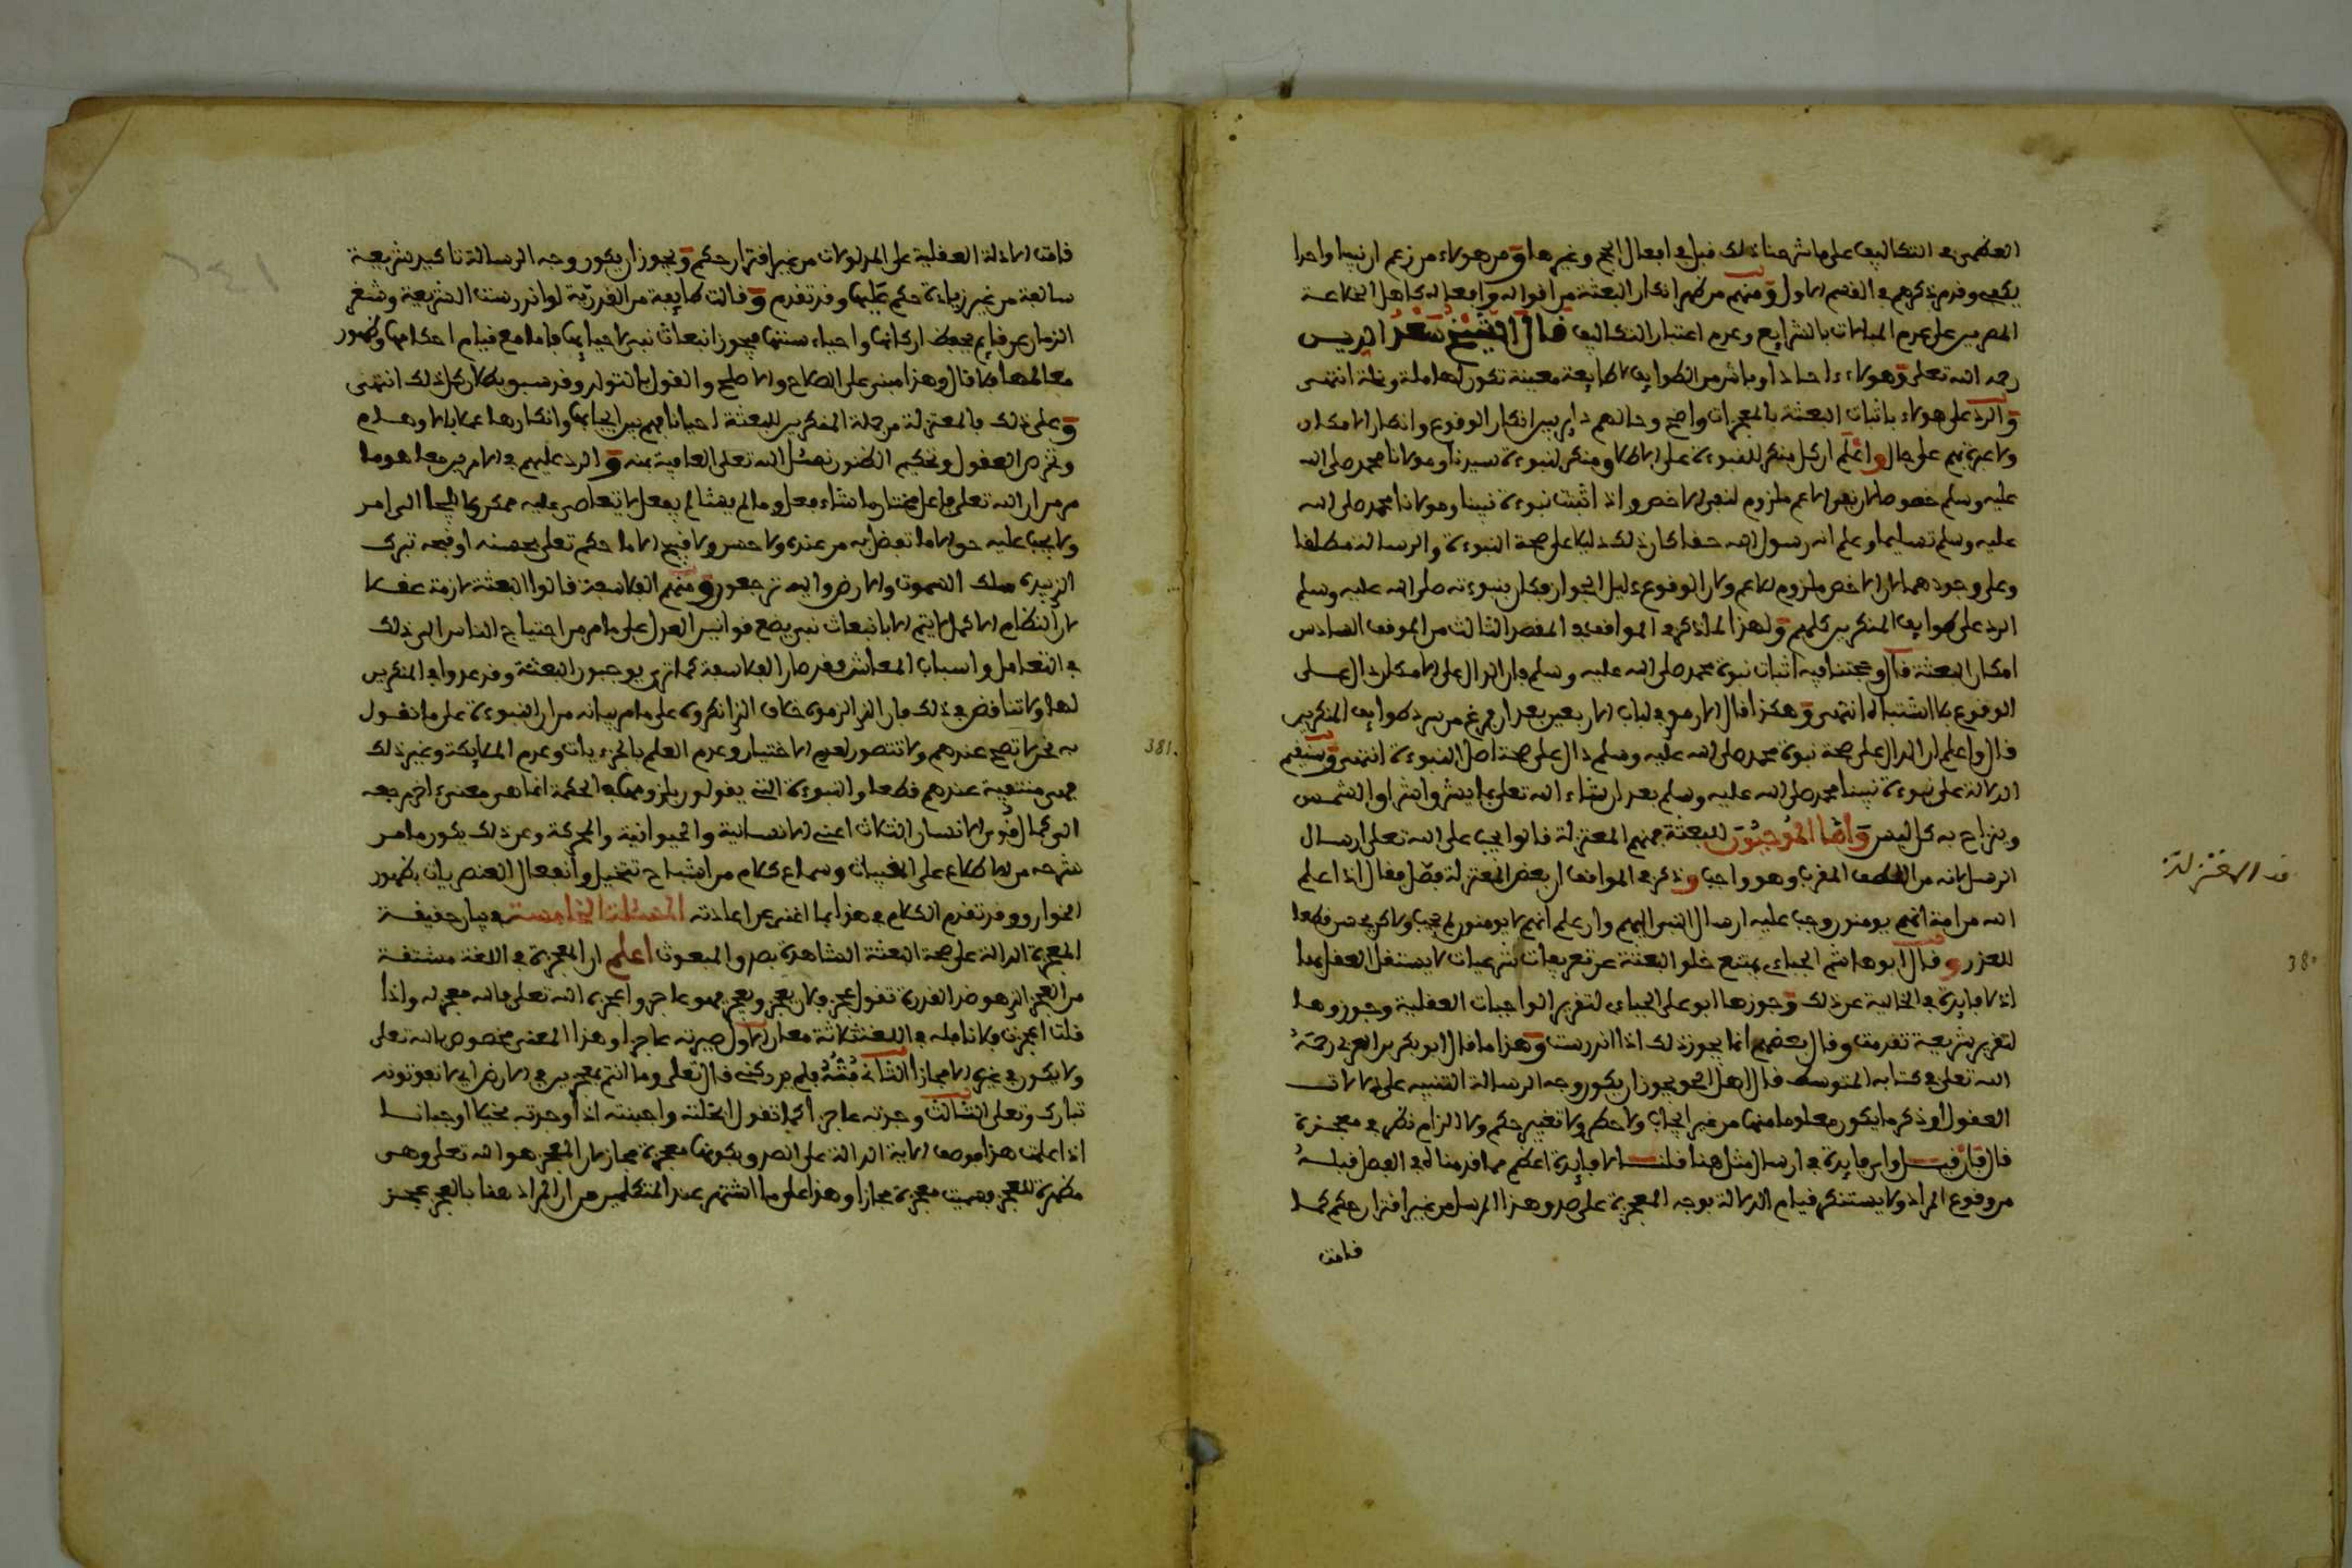 العظمى في التكاليف على ما شرحنا ذلك قبل في افعال الحج وغيرها ومن هولاء من زعم ان نبيا واحدا
يكفي وقدم ذكرهم في القسم الاول ومنهم من ظهر انكار البعثة من اقواله وافعاله كاهل الخلاعة
المصرين على عدم المبالات بالشرايع وعدم اعتبار التكاليف قال الشيخ سعد الدين
رحمه الله تعلى وهولاء احاد اوباش من الطوايف لا طايفة معينة تكون لها ملة ونحلة انتهى
والرد على هولاء باثبات البعثة بالمعجزات واضح وحالهم داير بين انكار الوقوع وانكار الامكان
ولا عبرة بهم على حال واعلم ان كل منكر للنبوءة على الاطلاق منكر لنبوءة سيدنا ومولانا محمد صلى الله
عليه وسلم خصوصا لان نفي الاعم ملزوم لنفي الاخص واذا اثبتت نبوءة نبينا ومولانا محمد صلى الله
عليه وسلم تسليما وعلم انه رسول الله حقا كان ذلك دليلا على صحة النبوءة والرسالة مطلقا
وعلى وجودهما لان الاخص ملزوم للاعم ولان الوقوع دليل الجواز فكان بنبوءته صلى الله عليه وسلم
الرد على طوايف المنكرين كلهم ولهذا لما ذكر في المواقف في المقصد الثالث من الموقف السادس
امكان البعثة قال وحجتنا فيه اثبات نبوة محمد صلى الله عليه وسلم فان الدال على الامكان دال على
الوقوع بلا اشتباه انتهى وهكذا قال الارموي في لباب الاربعين بعد ان فرغ من سرد طوايف المنكرين
قال واعلم ان الدال على صحة نبوة محمد صلى الله عليه وسلم دال على صحة اصل النبوءة انتهى وسنقيم
الدلالة على نبوءة نبينا محمد صلى الله عليه وسلم بعد ان شاء الله تعلى بما يشرق اشراق الشمس
وينزاح به كل لبس واما الموجبون للبعثة فمنهم المعتزلة قالوا يجب على الله تعلى ارسال
الرسل لانه من اللطف المقرب وهو واجب وذكر في المواقف ان بعض المعتزلة فصل فقال اذا علم
الله من امة انهم يومنون وجب عليه ارسال النبي اليهم وان علم انهم لا يومنون لم يجب ولاكن يحسن قطعا
للعذر وقال ابو هاشم الجباءي يمتنع خلو البعثة عن تعريفات شرعيات لا يستقل العقل بها
اذ لا فايدة في الخالية عن ذلك وجوزها ابو علي الجباءي لتقرير الواجبات العقلية وجوزوها
لتقرير شريعة تقدمت وقال بعضهم انما يجوز ذلك اذا اندرست وهذا ما قال ابو بكر بن العربي رحمة
الله تعلى في كتابه المتوسط قال اهل الحق ويجوز ان يكون وجه الرسالة التنبيه على دلالات
العقول وذكر ما يكون معلوما منها من غير ايجاب ولا حظر ولا تغيير حكم ولا الزام نظر في معجزة
قال فان قيل واي فايدة في ارسال مثل هذا قلنا لا فايدة اعظم مما قدمناه في الفصل قبله
من وقوع المراد ولا يستنكر قيام الدلالة بوجه المعجزة على صدق هذا المرسل من غير اقتران حكم كما
قامت
قد المعتزلة
380
قامت الادلة العقلية على المدلولات من غير اقتران حكم ويجوز ان يكون وجه الرسالة تاكيد شريعة
سابقة من غير زيادة حكم عليها وقد تقدم وقالت طايفة من القدرية لو اندرست الشريعة وشغر
الزمان عن قايم يحفظ اركانها واحياء سنتها فيجوز انبعاث نبي لاحيايها فاما مع قيام احكامها وظهور
معالمها فلا قال وهذا مبني على الصلاح والاصلح والقول بالتولد وقد سبق بطلان كل ذلك انتهى
وعلى ذلك فالمعتزلة من جملة المنكرين للبعثة احيانا فهم بين ايجابها وانكارها عملا بالاوهام
وشره العقول وتحكيم الظنون نسئل الله تعلى العافية بمنه والرد عليهم في الامرين معا هو ما
مر من ان الله تعلى فاعل مختار ما شاء فعل وما لم يشا لم يفعل لا يتعاصى عليه ممكن ولا يلجا الى امر
ولا يجب عليه حق الا ما تفضل به من عنده ولا حسن ولا قبيح الا ما حكم تعلى بحسنه او قبحه تبرك
الذي بيده ملك السموت والارض واليه ترجعون ومنهم الفلاسفة قالوا البعثة لازمة عقلا
لان النظام الاكمل لا يتم الا بانبعاث نبي يضع قوانين العدل على ما مر من احتياج الناس الى ذلك
في التعامل واسباب المعاش فقد صار الفلاسفة كما ترى يوجبون البعثة وقد عدوا في المنكرين
لها ولا تناقض في ذلك فان الذي التزموه خلاف الذي انكروه على ما مر بيانه من ان النبوءة على ما نقول
به نحن لا تصح عندهم ولا تتصور لعدم الاختيار وعدم العلم بالجزءيات وعدم الملايكة وغير ذلك
فهي منتفية عندهم قطعا والنبوءة التي يقولون بلزومها في الحكمة انما هي معنى اخر يرجع
الى كمال قوى الانسان الثلاث اعني الانسانية والحيوانية والمحركة وعن ذلك يكون ما مر
شرحه من الاطلاع على المغيبات وسماع كلام من اشباح تتخيل وانفعال العنصريات بظهور
الخوارق وقد تقدم الكلام في هذا بما اغنى عن اعادته المسئلة الخامسة في بيان حقيقة
المعجزة الدالة على صحة البعثة الشاهدة بصدق المبعوث اعلم ان المعجزة في اللغة مشتقة
من العجز الذي هو ضد القدرة تقول عجز فلان يعجز ويعجز فهو عاجز واعجزه الله تعلى فالله معجز له واذا
قلت اعجزت فلانا فله في اللغة ثلاثة معان الاول صيرته عاجزا وهذا المعنى مخصوص بالله تعلى
ولا يكون في غيره الا مجازا الثاني فته فلم يدركني قال تعلى وما انتم بمعجزين في الارض اي لا تفوتونه
تبارك وتعلى الثالث وجدته عاجزا كما تقول ابخلته واجبنته اذا وجدته بخيلا او جبانا
اذا علمت هذا فوصف الاية الدالة على الصدق بكونها معجزة مجاز لان المعجز هو الله تعلى وهي
مظهرة للعجز فسميت معجزة مجازا وهذا على ما اشتهر عند المتكلمين من ان المراد هنا بالعجز عجز
381